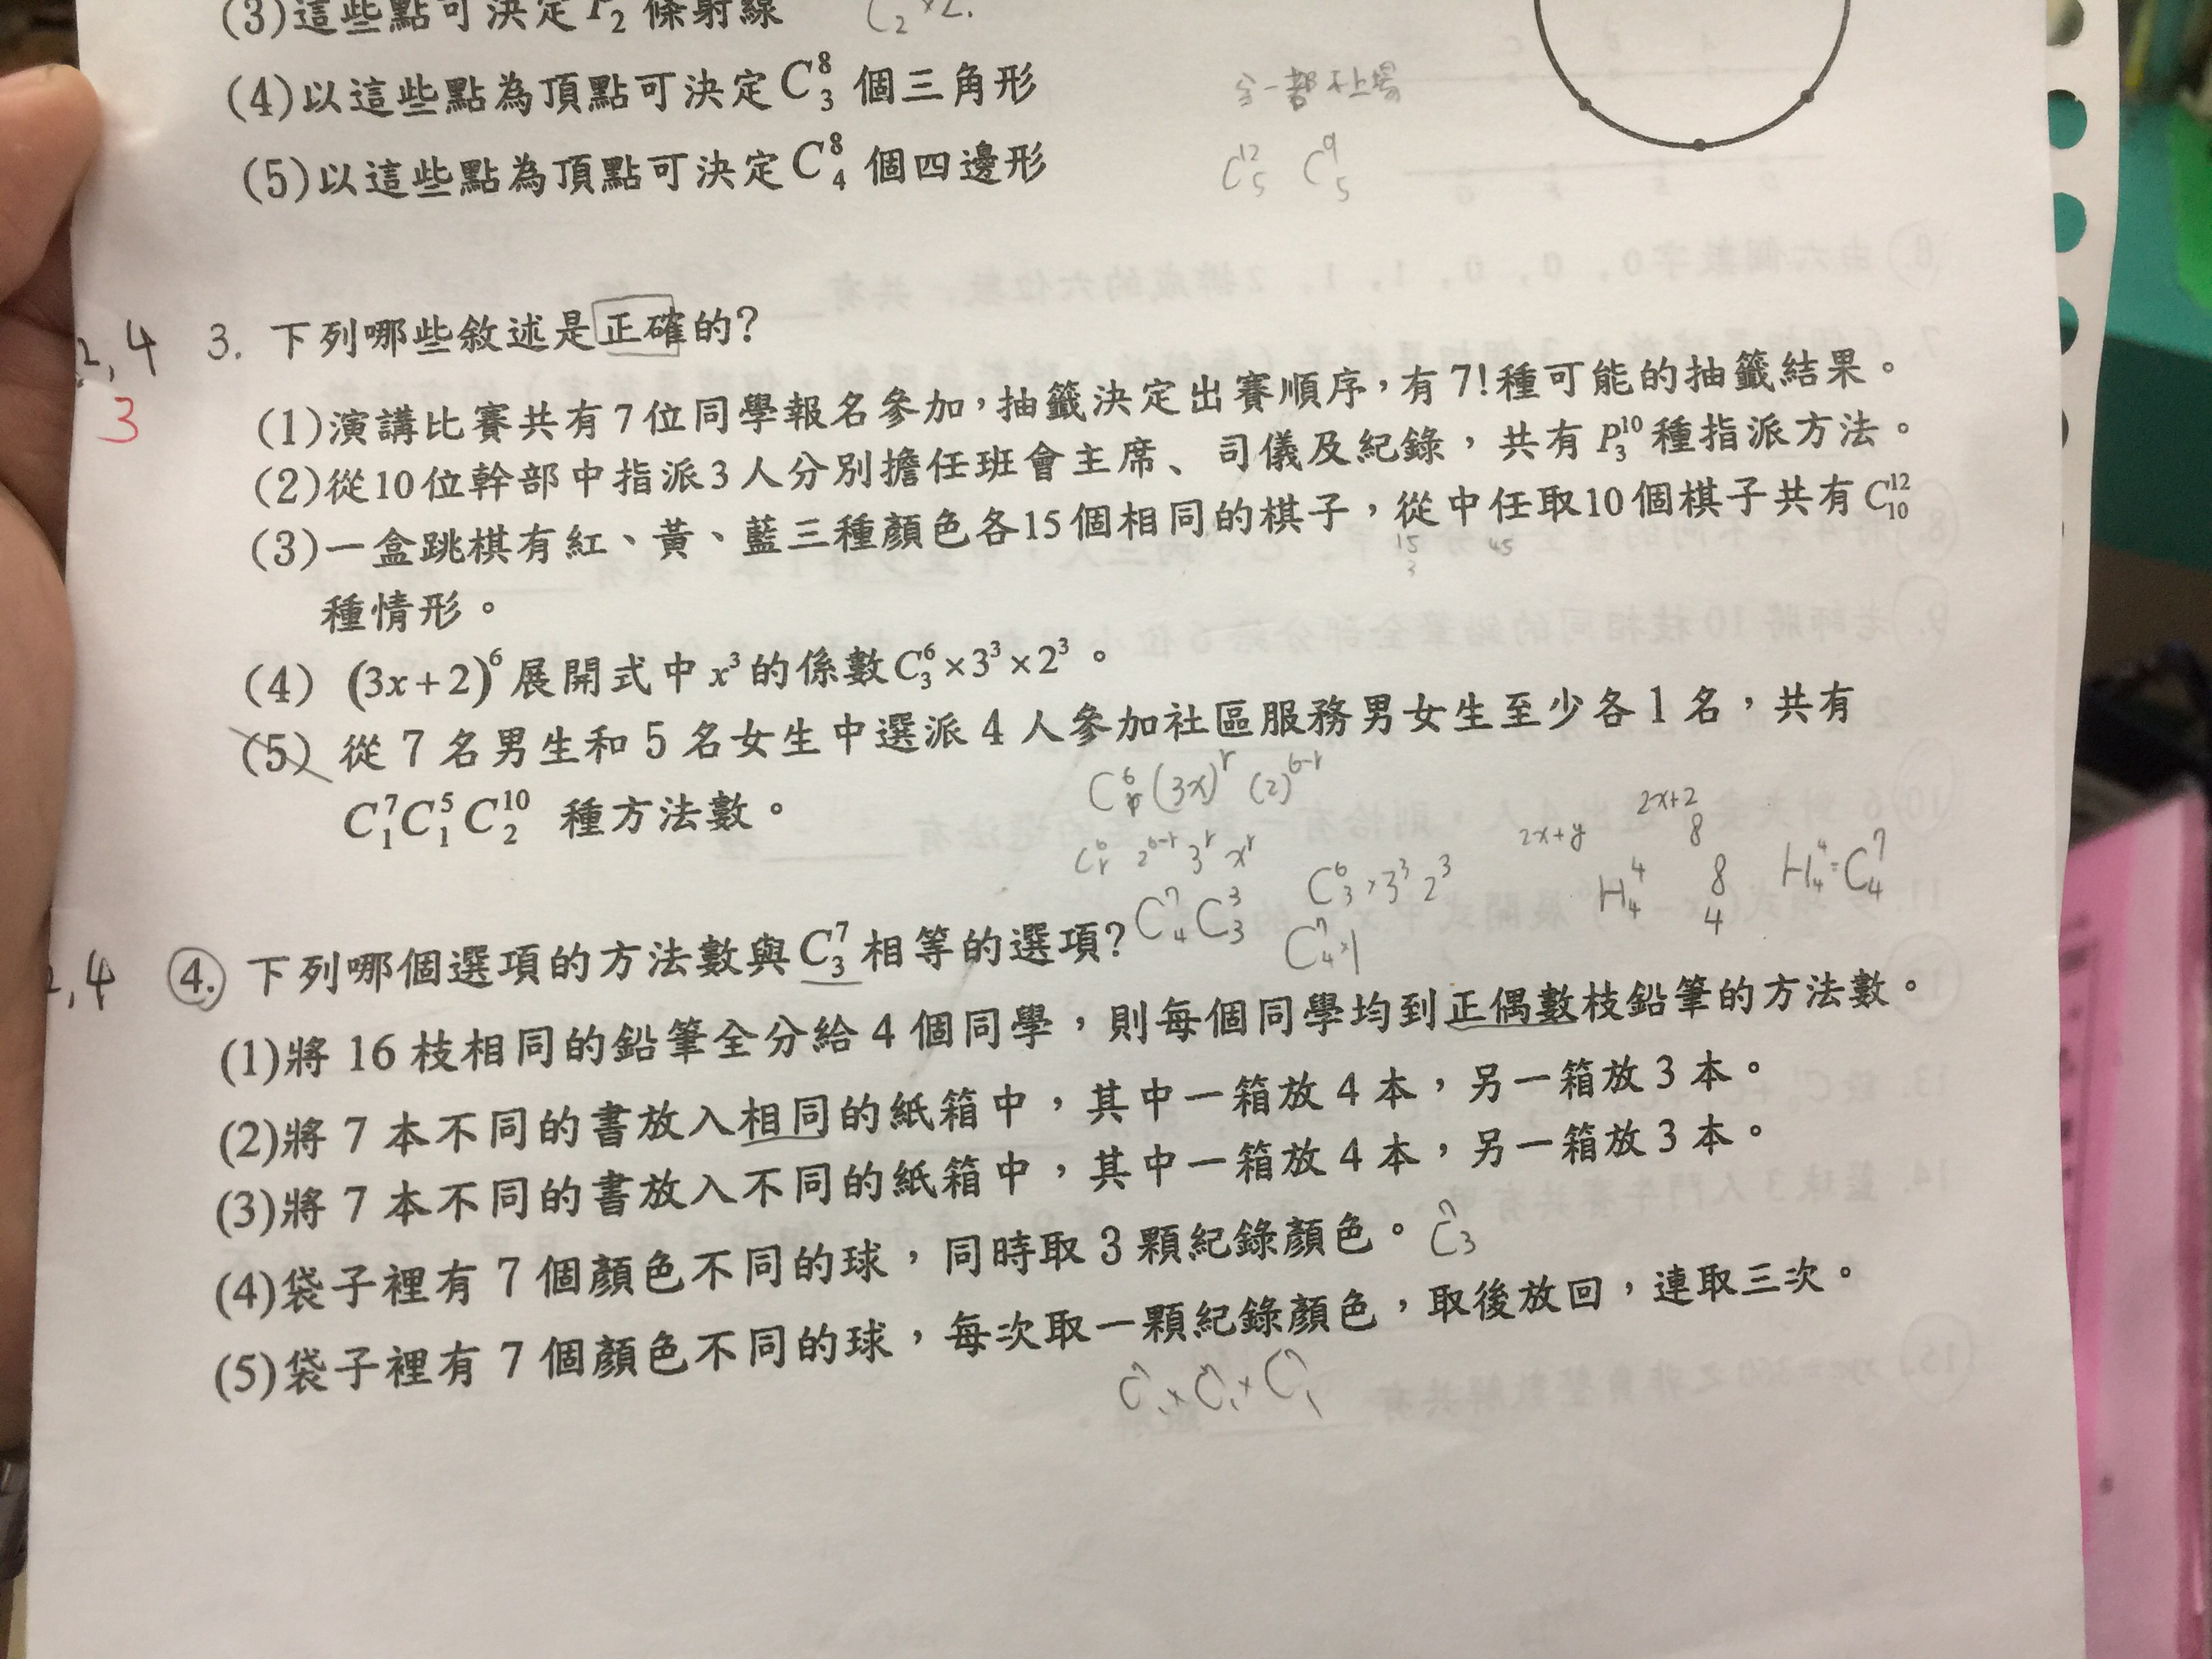 (3)這些點可決定P₂條射線 C₂×2.
(4)以這些點為頂點可決定C⁸₃個三角形
(5)以這些點為頂點可決定C⁸₄個四邊形
C¹²₅ C⁹₅
2,4
3
3. 下列哪些敘述是正確的?
(1)演講比賽共有7位同學報名參加,抽籤決定出賽順序,有7!種可能的抽籤結果。
(2)從10位幹部中指派3人分別擔任班會主席、司儀及紀錄,共有P¹⁰₃種指派方法。
(3)一盒跳棋有紅、黃、藍三種顏色各15個相同的棋子,從中任取10個棋子共有C¹²₁₀
15 45
3
種情形。
(4) (3x+2)⁶展開式中x³的係數C⁶₃×3³×2³。
(5) 從7名男生和5名女生中選派4人參加社區服務男女生至少各1名,共有
C⁷₁C⁵₁C¹⁰₂ 種方法數。
(3x)ʳ (2)⁶⁻ʳ
C⁶ᵣ 2⁶⁻ʳ 3ʳ xʳ
C⁶₃ 3³ 2³
2x+y
2x+2
8
H⁴₄
8
4
H⁴₄=C⁷₄
C⁷₄C³₃
C⁷₄×1
2,4
4. 下列哪個選項的方法數與C⁷₃相等的選項?
(1)將16枝相同的鉛筆全分給4個同學,則每個同學均到正偶數枝鉛筆的方法數。
(2)將7本不同的書放入相同的紙箱中,其中一箱放4本,另一箱放3本。
(3)將7本不同的書放入不同的紙箱中,其中一箱放4本,另一箱放3本。
(4)袋子裡有7個顏色不同的球,同時取3顆紀錄顏色。 C⁷₃
(5)袋子裡有7個顏色不同的球,每次取一顆紀錄顏色,取後放回,連取三次。
C⁷₁×C⁷₁×C⁷₁